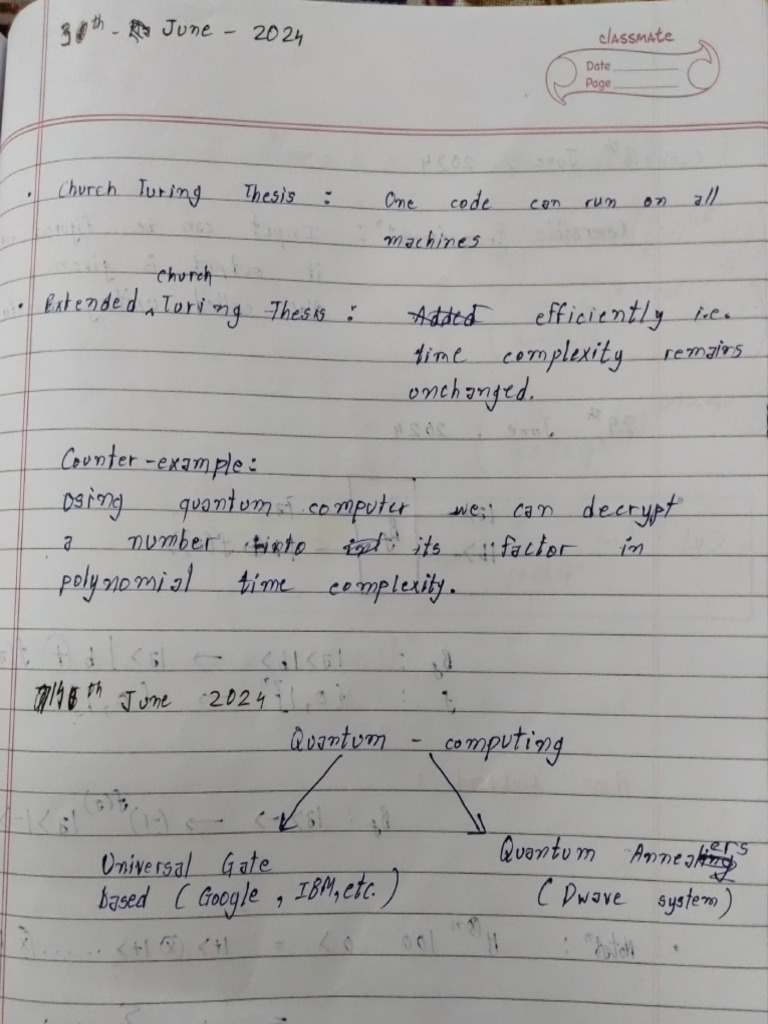 30th - June - 2024
classmate
Date
Page
• Church Turing Thesis : One code can run on all
machines
church
• Extended ^ Turing Thesis : Added efficiently i.e.
time complexity remains
unchanged.
Counter-example:
Using quantum computer we can decrypt
a number into its factor in
polynomial time complexity.
th June 2024
Quantum - computing
Universal Gate
based (Google, IBM, etc.)
Quantum Annealers
(Dwave system)